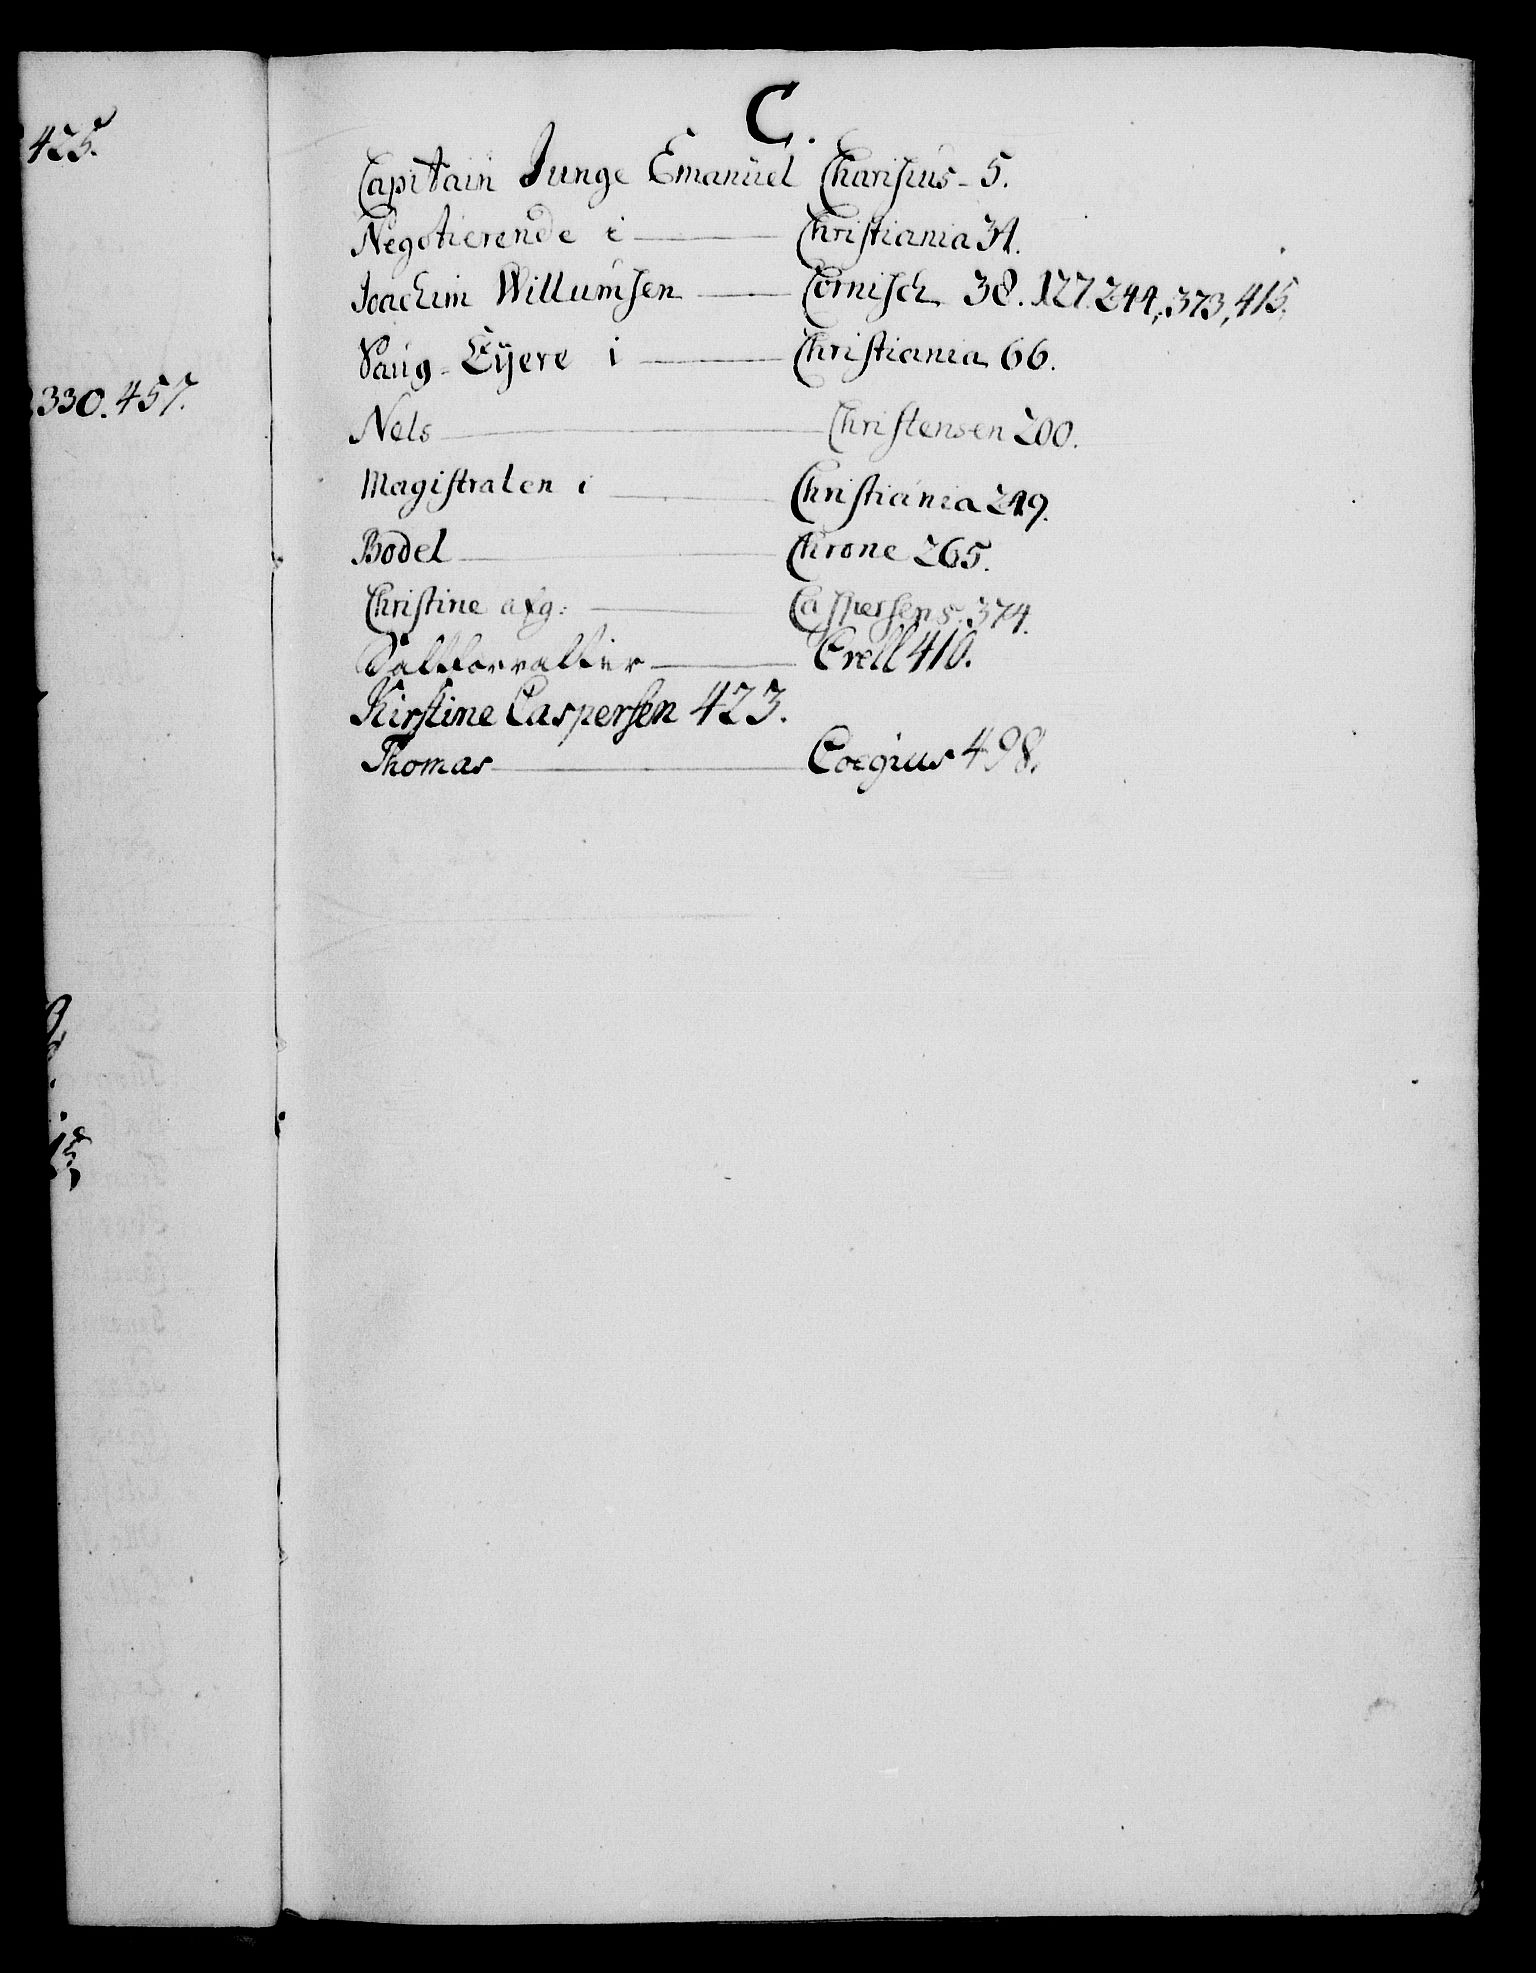 425.
330. 457.
C.
Capitain Junge Emanuel Charisius - 5.
Negotierende i Christiania 31.
Joachim Willumsen Cornisch 38. 127. 244, 373, 415.
Saug-Eyere i Christiania 66.
Nels Christensen 200.
Magistraten i Christiania 249.
Bodel Chrone 265.
Christine afg: Caspersens 374.
Saltforvalter Crell 410.
Kirstine Caspersen 423.
Thomas Coegius 498.